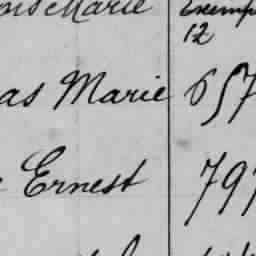 Marie Exemp
12
as Marie 657
Ernest 797